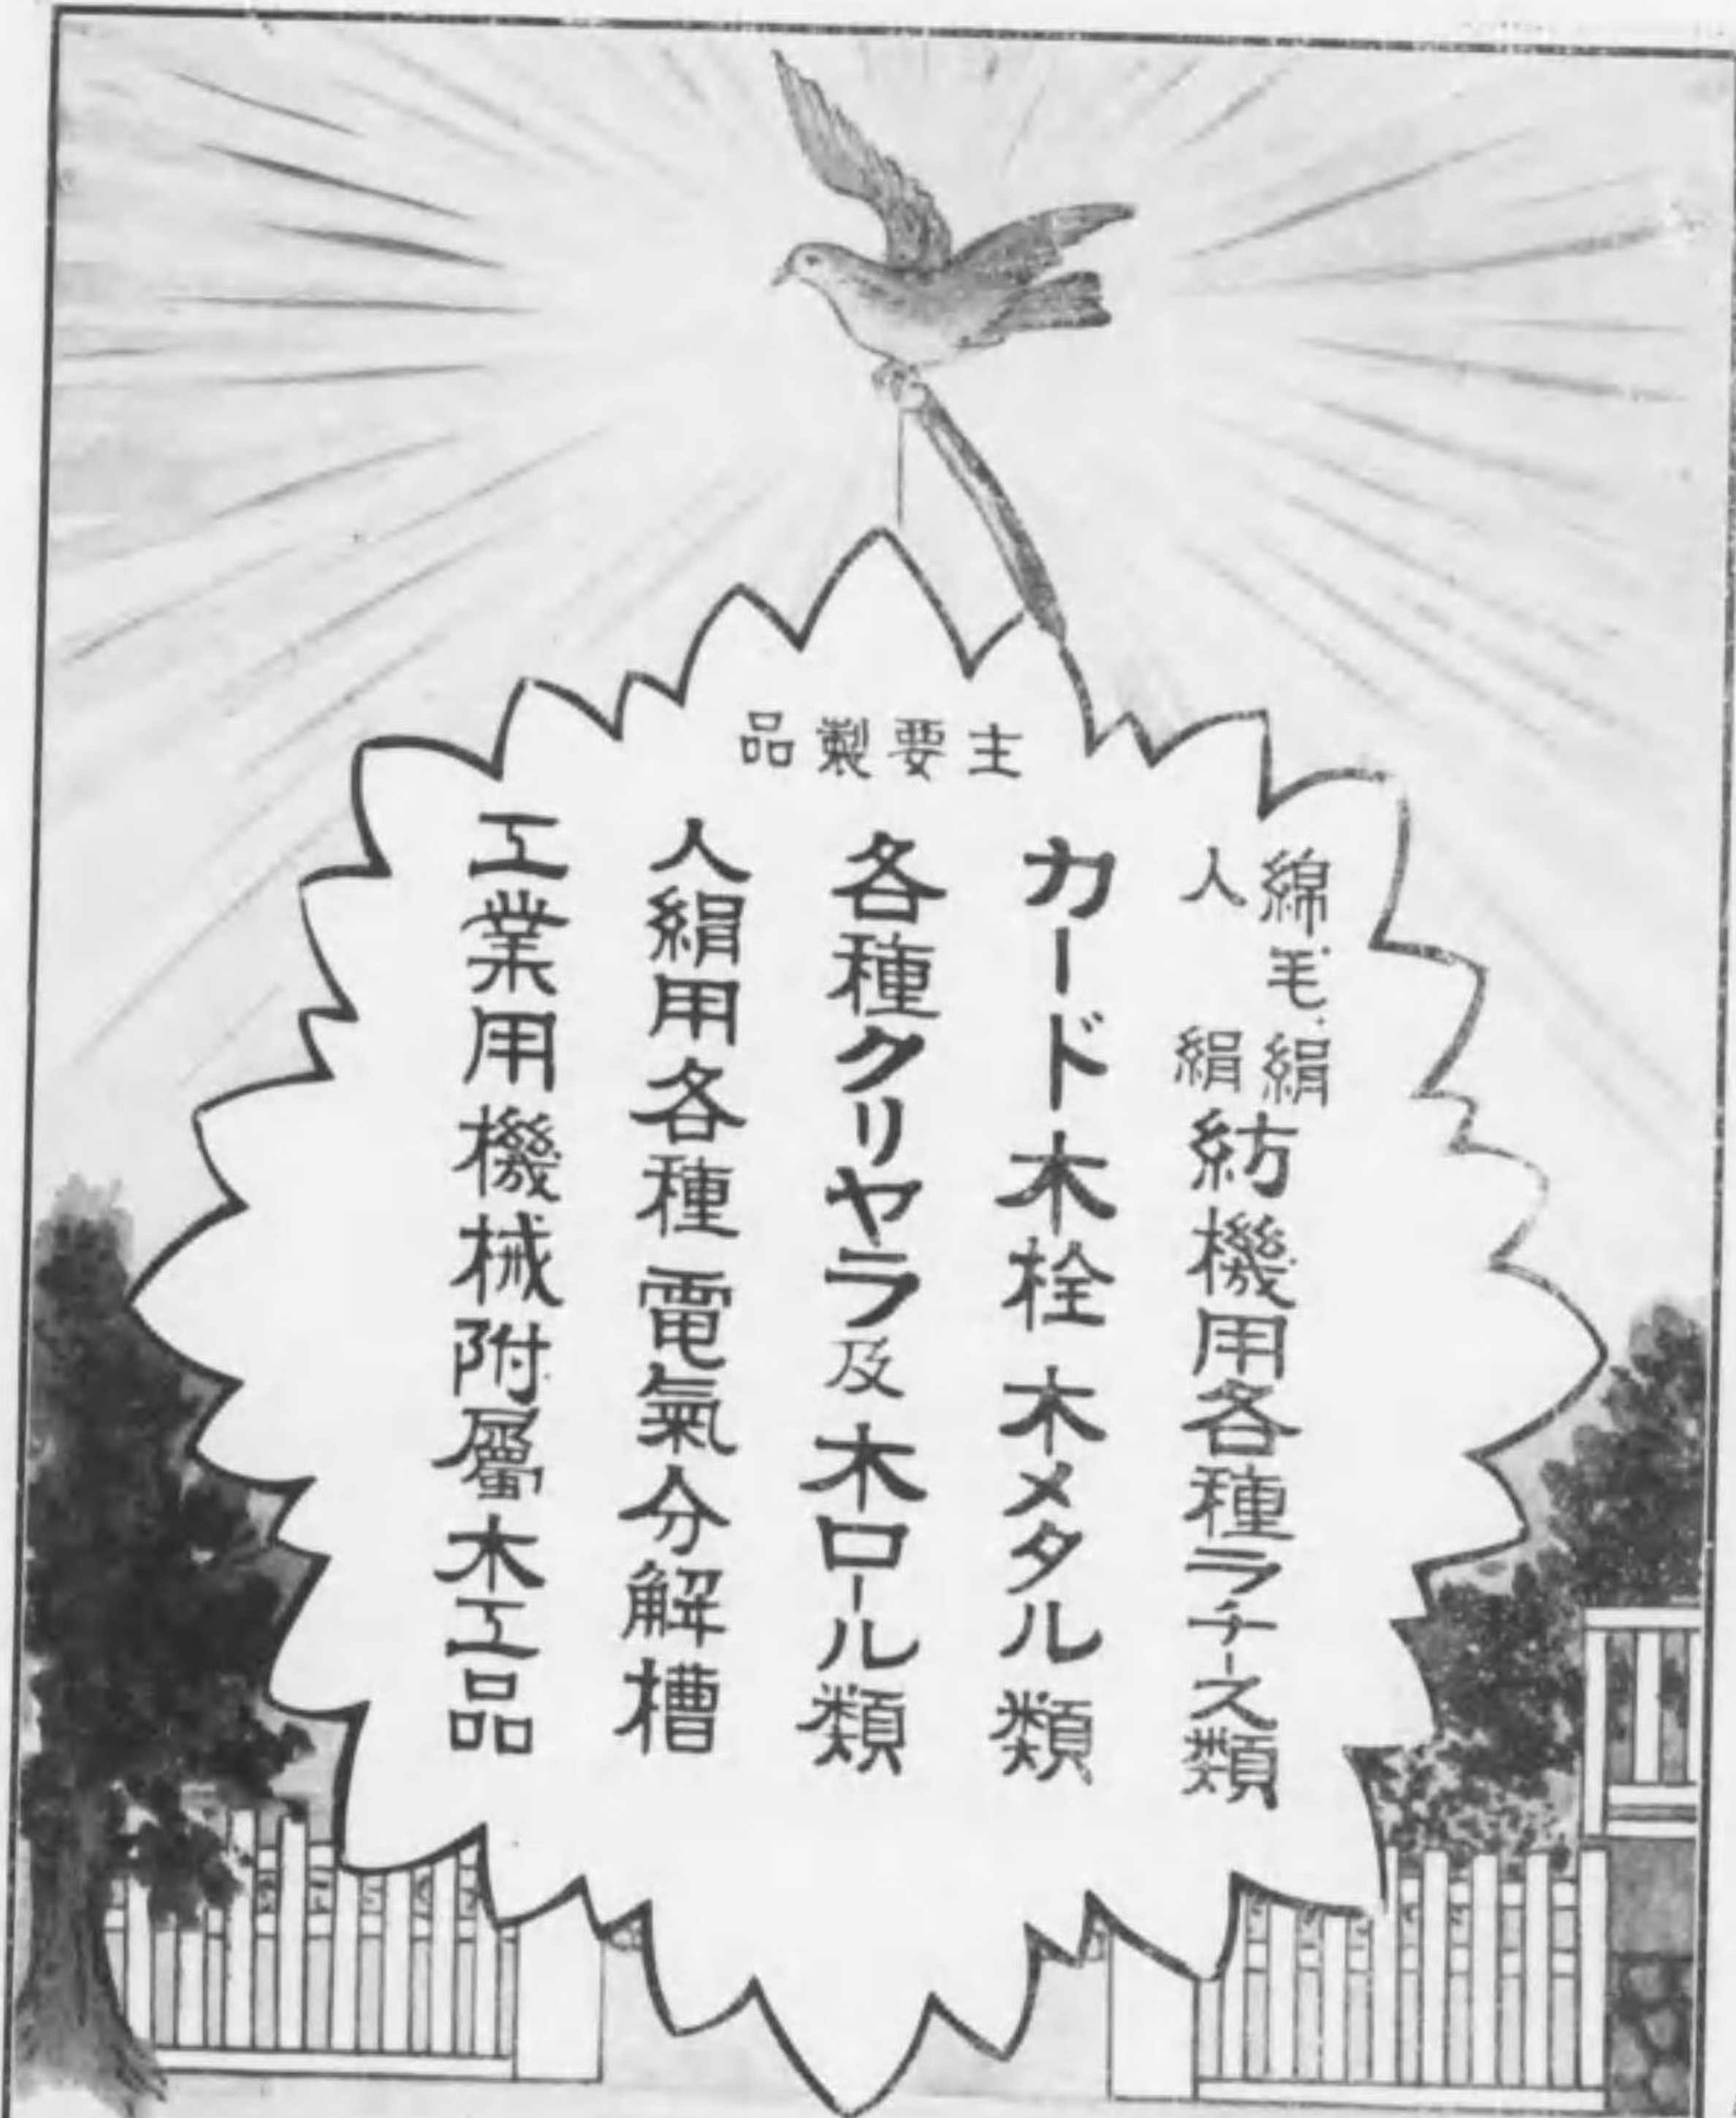 主要製品
綿毛.絹
人絹
紡機用各種ラチース類
カード木栓 木メタル類
各種クリヤラ及木ロール類
人絹用各種電氣分解槽
工業用機械附屬木工品